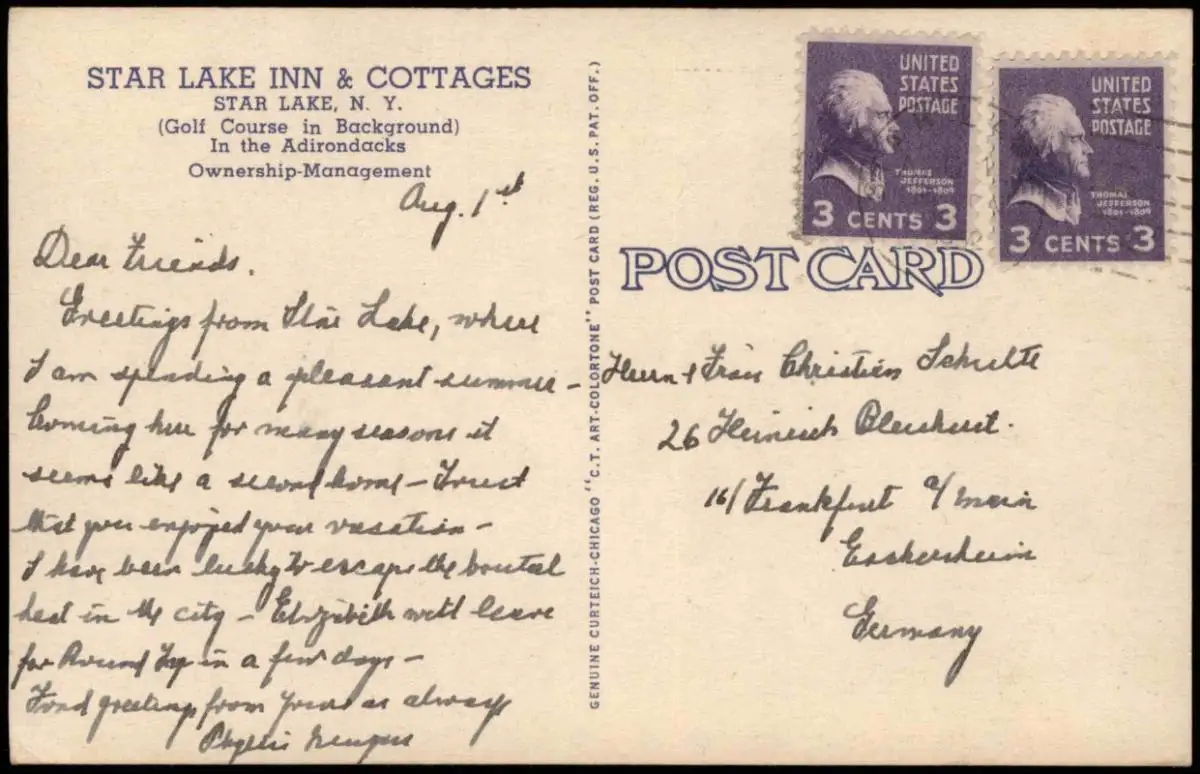 STAR LAKE INN & COTTAGES
STAR LAKE, N. Y.
(Golf Course in Background)
In the Adirondacks
Ownership-Management
Aug. 1st
Dear Friends.
Greetings from Star Lake, where
I am spending a pleasant summer -
Coming here for many seasons it
seems like a second home - Trust
that you enjoyed your vacation -
I have been lucky to escape the brutal
heat in the city - Elizabeth will leave
for Round in a few days -
Fond greetings from yours as always
Phyllis
GENUINE CURTEICH-CHICAGO "C.T. ART-COLORTONE" POST CARD (REG. U.S. PAT. OFF.)
UNITED
STATES
POSTAGE
THOMAS
JEFFERSON
1801-1809
3 CENTS 3
UNITED
STATES
POSTAGE
THOMAS
JEFFERSON
1801-1809
3 CENTS 3
POST CARD
Herrn & Frau Christian Schulte
26 Heinrich
16/ Frankfurt a/ Main
Eschersheim
Germany